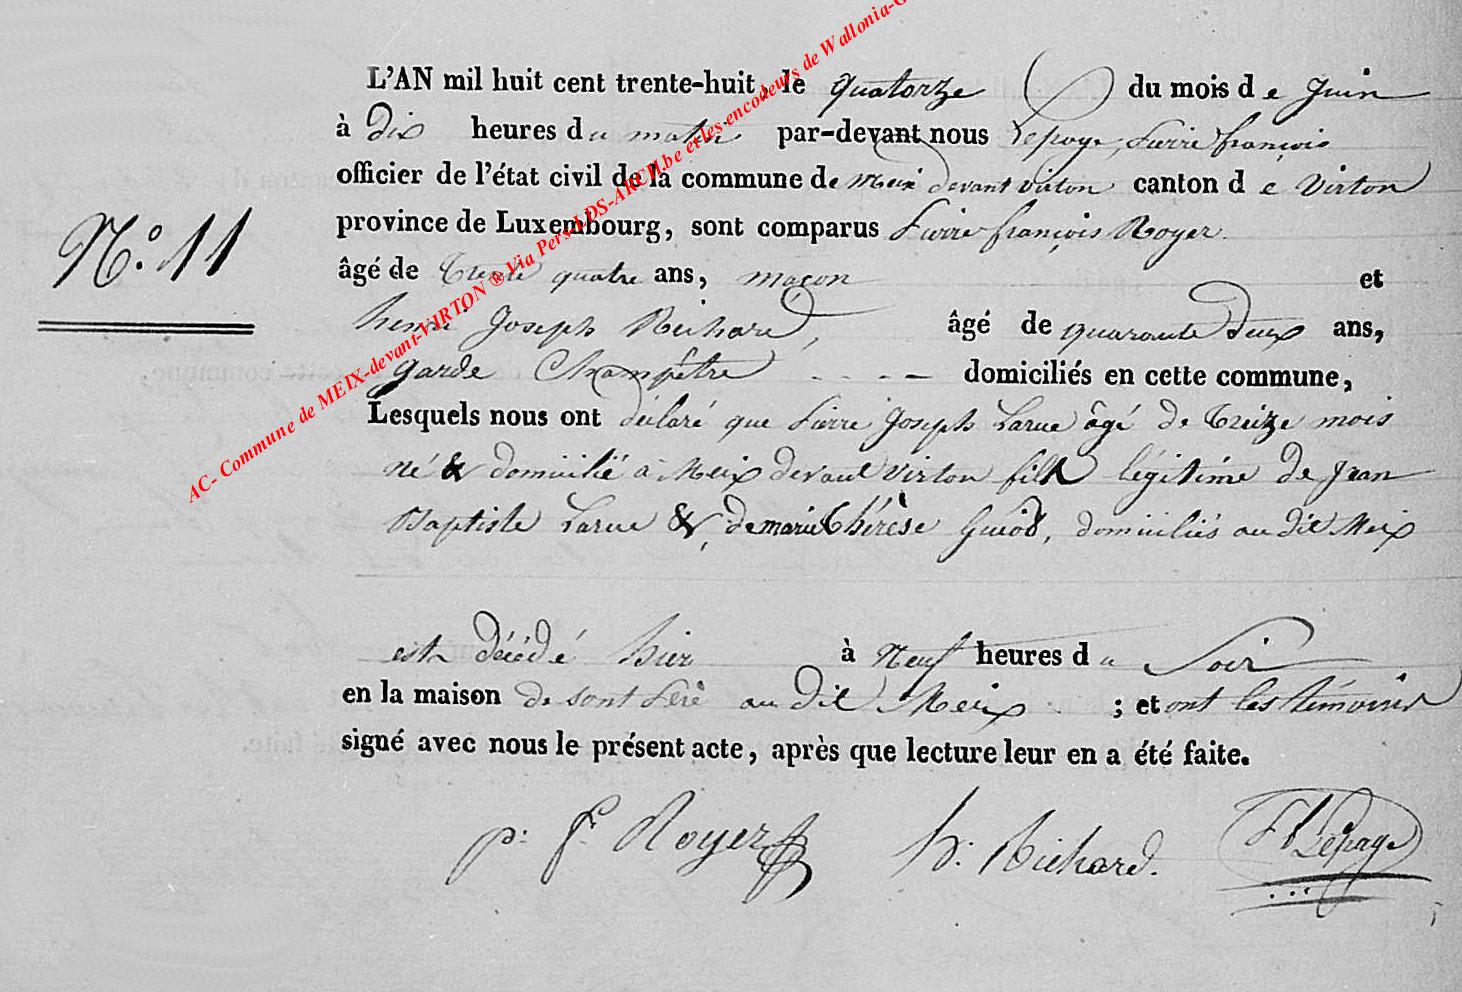 L'AN mil huit cent trente-huit, le quatorze du mois de Juin
à dix heures du matin par-devant nous Lepage, pierre françois
officier de l'état civil de la commune de Meix devant virton canton de Virton
province de Luxembourg, sont comparus pierre françois Royer
âgé de trente quatre ans, maçon et
N.º 11
henri Joseph Richard, âgé de quarante deux ans,
garde Champêtre domiciliés en cette commune,
Lesquels nous ont déclaré que pierre Joseph Larue âgé de treize mois
né & domicilié à Meix devant virton fils légitime de Jean
Baptiste Larue & de marie thérèse Guiot, domiciliés au dit Meix
est décédé hier à Neuf heures du Soir
en la maison de sont père au dit Meix ; et ont les témoins
signé avec nous le présent acte, après que lecture leur en a été faite.
p: f. Royer h: Richard. Lepage
AC- Commune de MEIX-devant-VIRTON ® Via Pers-LDS-ARCH.be et les encodeurs de Wallonia-G